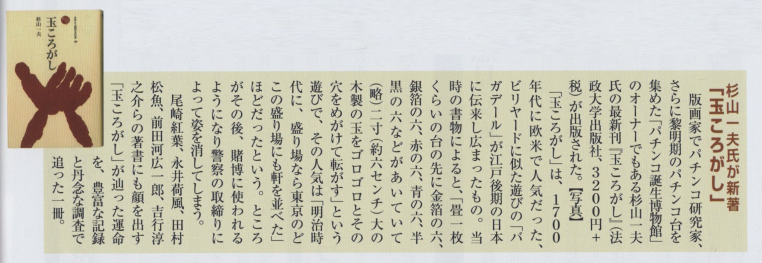 玉ころがし
杉山一夫
杉山一夫氏が新著
「玉ころがし」
版画家でパチンコ研究家、
さらに黎明期のパチンコ台を
集めた「パチンコ誕生博物館」
のオーナーでもある杉山一夫
氏の最新刊『玉ころがし』(法
政大学出版社、3200円+
税)が出版された。【写真】
「玉ころがし」は、1700
年代に欧米で人気だった、
ビリヤードに似た遊びの「バ
ガデール」が江戸後期の日本
に伝来し広まったもの。当
時の書物によると、「畳一枚
くらいの台の先に金箔の穴、
銀箔の穴、赤の穴、青の穴、半
黒の穴などがあいていて
(略)二寸(約六センチ)大の
木製の玉をゴロゴロとその
穴をめがけて転がす」という
遊びで、その人気は「明治時
代に、盛り場なら東京のど
この盛り場にも軒を並べた」
ほどだったという。ところ
がその後、賭博に使われる
ようになり警察の取締りに
よって姿を消してしまう。
尾崎紅葉、永井荷風、田村
松魚、前田河広一郎、吉行淳
之介らの著書にも顔を出す
「玉ころがし」が辿った運命
を、豊富な記録
と丹念な調査で
追った一冊。